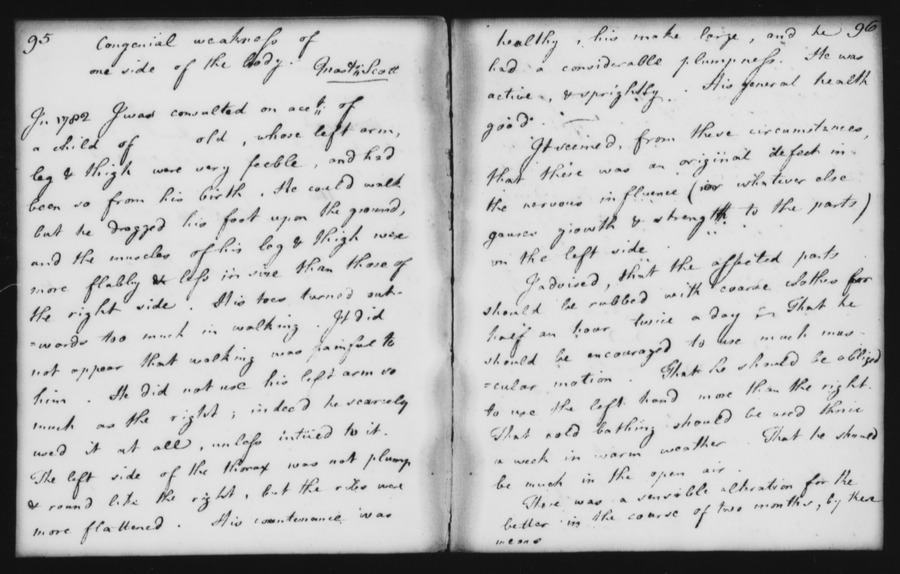 95
Congenial weakness of
one side of the body. Masr Scott
In 1782 I was consulted on acct. of
a child of old, whose left arm,
leg & thigh were very feeble, and had
been so from his birth. He could walk
but he dragged his foot upon the ground,
and the muscles of his leg & thigh were
more flabby & less in size than those of
the right side. His toes turned out-
=wards too much in walking. It did
not appear that walking was painful to
him. He did not use his left arm so
much as the right; indeed he scarcely
used it at all, unless intited to it.
The left side of the thorax was not plump
& round like the right, but the ribs were
more flattened. His countenance was
96
healthy, his make large, and he
had a considerable plumpness. He was
active, & sprightly. His general health
good.
It seemed, from these circumstances,
that there was an original defect in
the nervous influence (or whatever else
causes growth & strength to the parts)
on the left side.
I advised, that the affected parts
should be rubbed with coarse clothes for
half an hour twice a day — That he
should be encouraged to use much mus-
=cular motion. That he should be obliged
to use the left hand more than the right.
That cold bathing should be used thrice
a week in warm weather. That he should
be much in the open air.
There was a sensible alteration for the
better in the course of two months, by these
means